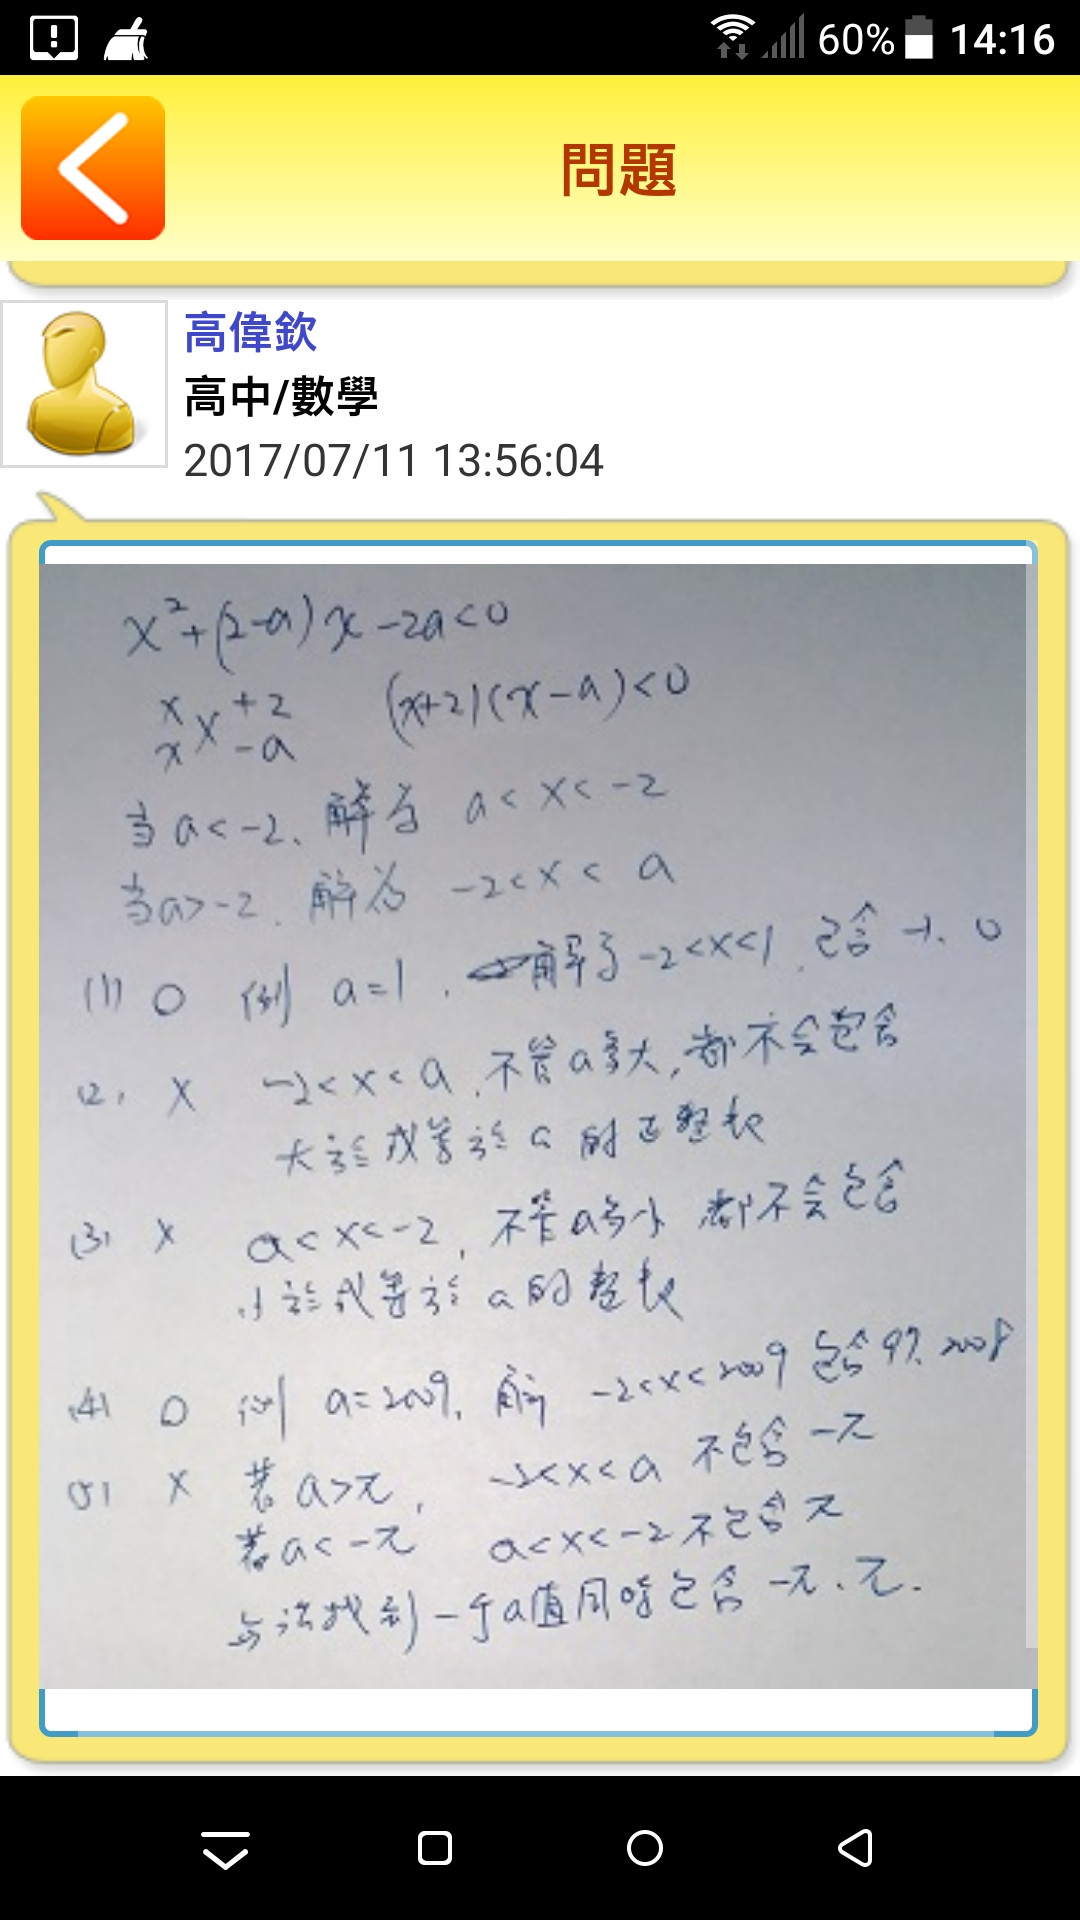 60% 14:16
問題
高偉欽
高中/數學
2017/07/11 13:56:04
x²+(2-a)x-2a<0
x +2
x -a
(x+2)(x-a)<0
当a<-2、解为 a<x<-2
当a>-2、解為 -2<x<a
(1) O 例 a=1、解为-2<x<1、包含-1、0
(2) X -2<x<a、不管a多大,都不会包含
大於或等於a的正整数
(3) X a<x<-2、不管a多小 都不会包含
小於或等於a的整数
(4) O 例 a=2009、解为 -2<x<2009 包含97、2008
(5) X 若a>π, -2<x<a 不包含-π
若a<-π a<x<-2不包含π
无法找到一个a值同時包含-π、π.